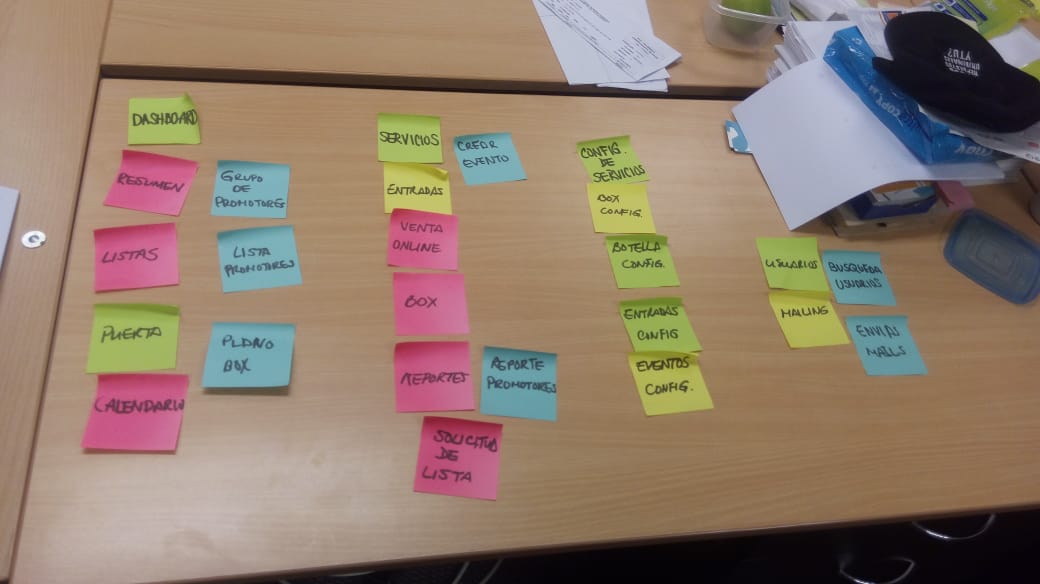 DASHBOARD
RESUMEN
GRUPO
DE
PROMOTORES
LISTAS
LISTA
PROMOTORES
PUERTA
PLANO
BOX
CALENDARIO
SERVICIOS
CREAR
EVENTO
ENTRADAS
VENTA
ONLINE
BOX
REPORTES
REPORTE
PROMOTORES
SOLICITUD
DE
LISTA
CONFIG.
DE
SERVICIOS
BOX
CONFIG.
BOTELLA
CONFIG.
ENTRADAS
CONFIG
EVENTOS
CONFIG.
USUARIOS
BUSQUEDA
USUARIOS
MAILING
ENVIAS
MAILS
COPY